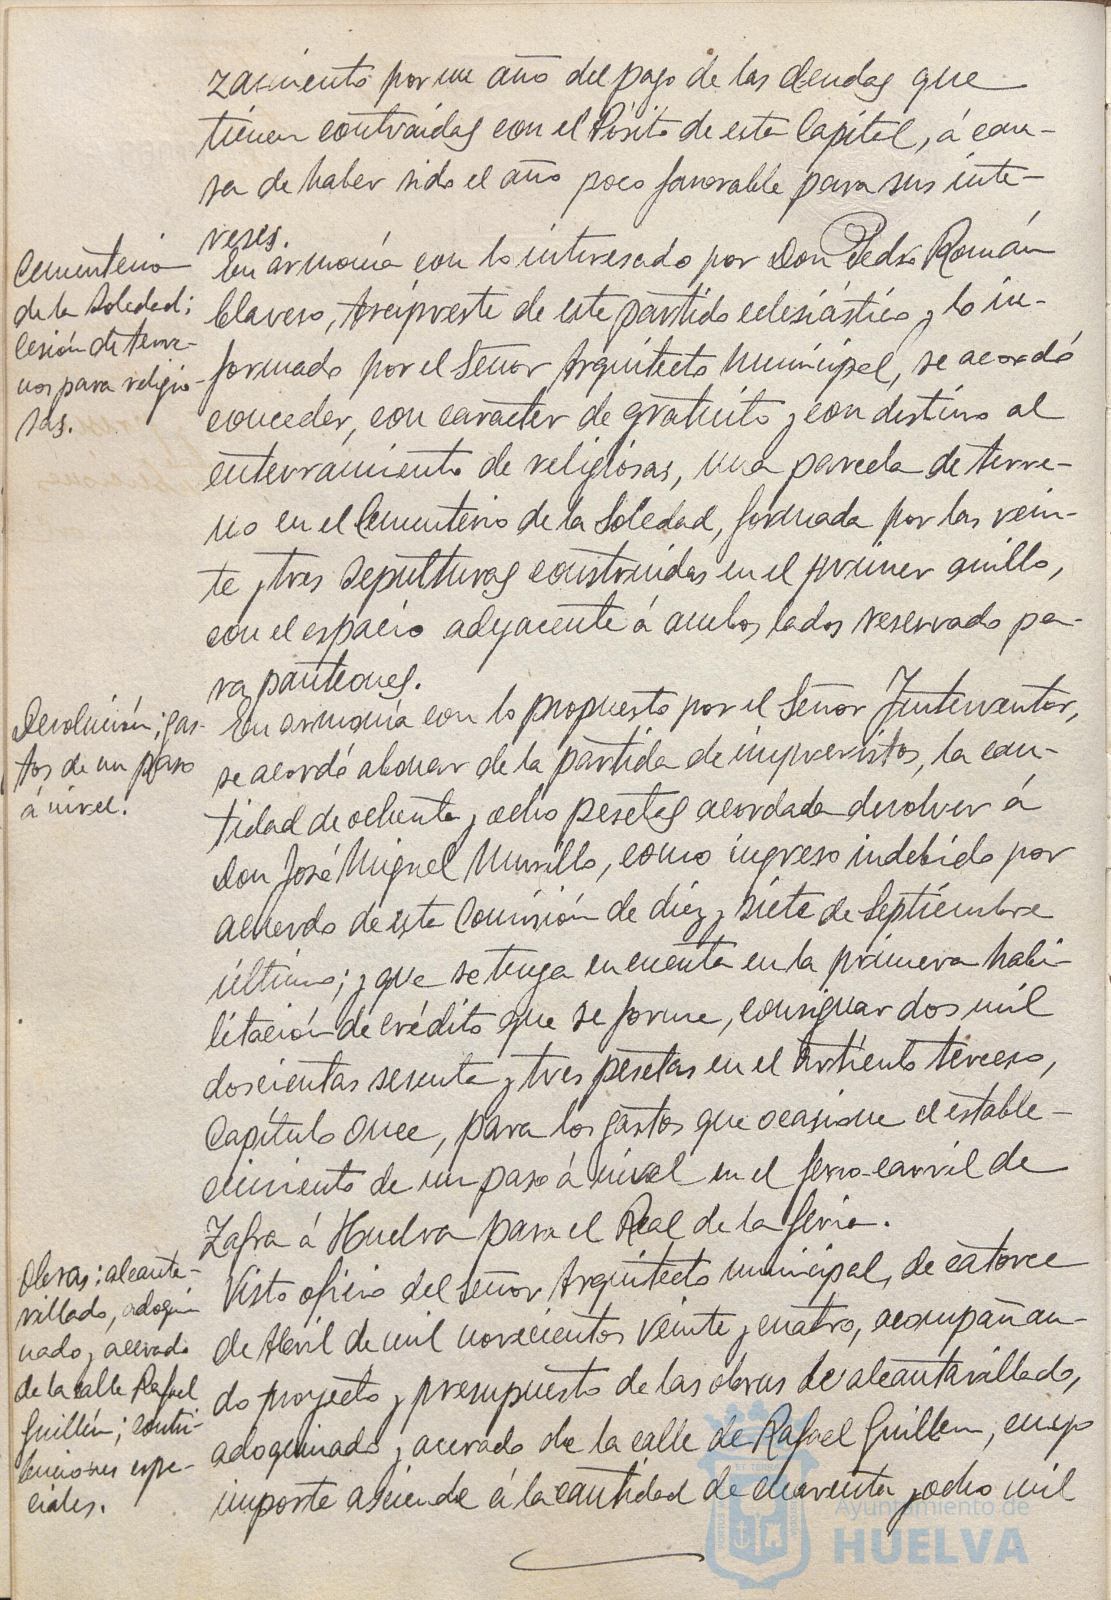 zamiento por un año del pago de las deudas que
tienen contraidas con el Pósito de esta Capital, á cau-
sa de haber sido el año poco favorable para sus inte-
reses.
Cementerio
de la Soledad;
cesión de terre-
nos para religio-
sas.
En armonía con lo interesado por Don Pedro Román
Clavero, Arcipreste de este partido eclesiástico y lo in-
formado por el Señor Arquitecto Municipal, se acordó
conceder, con caracter de gratuito y con destino al
enterramiento de religiosas, una parcela de terre-
no en el Cementerio de la Soledad, formada por las vein-
te y tres sepulturas construidas en el primer anillo,
con el espacio adyacente á ambos lados reservado pa-
ra panteones.
Devolución; gas-
tos de un paso
á nivel.
En armonía con lo propuesto por el Señor Interventor,
se acordó abonar de la partida de imprevistos, la can-
tidad de ochenta y ocho pesetas acordada devolver á
Don José Miguel Murillo, como ingreso indebido por
acuerdo de esta Comisión de diez y siete de Septiembre
último; y que se tenga en cuenta en la primera habi-
litación de crédito que se forme, consignar dos mil
doscientas sesenta y tres pesetas en el Artículo tercero,
Capítulo Once, para los gastos que ocasione el estable-
cimiento de un paso á nivel en el ferro-carril de
Zafra á Huelva para el Real de la feria.
Obras: alcanta-
rillado, adoqui
nado y acerado
de la calle Rafael
Guillén; contri-
buciones espe-
ciales.
Visto oficio del Señor Arquitecto municipal, de catorce
de Abril de mil novecientos veinte y cuatro, acompañan-
do proyecto y presupuesto de las obras de alcantarillado,
adoquinado y acerado de la calle de Rafael Guillen, cuyo
importe asciende á la cantidad de cuarenta y ocho mil
Ayuntamiento de
HUELVA